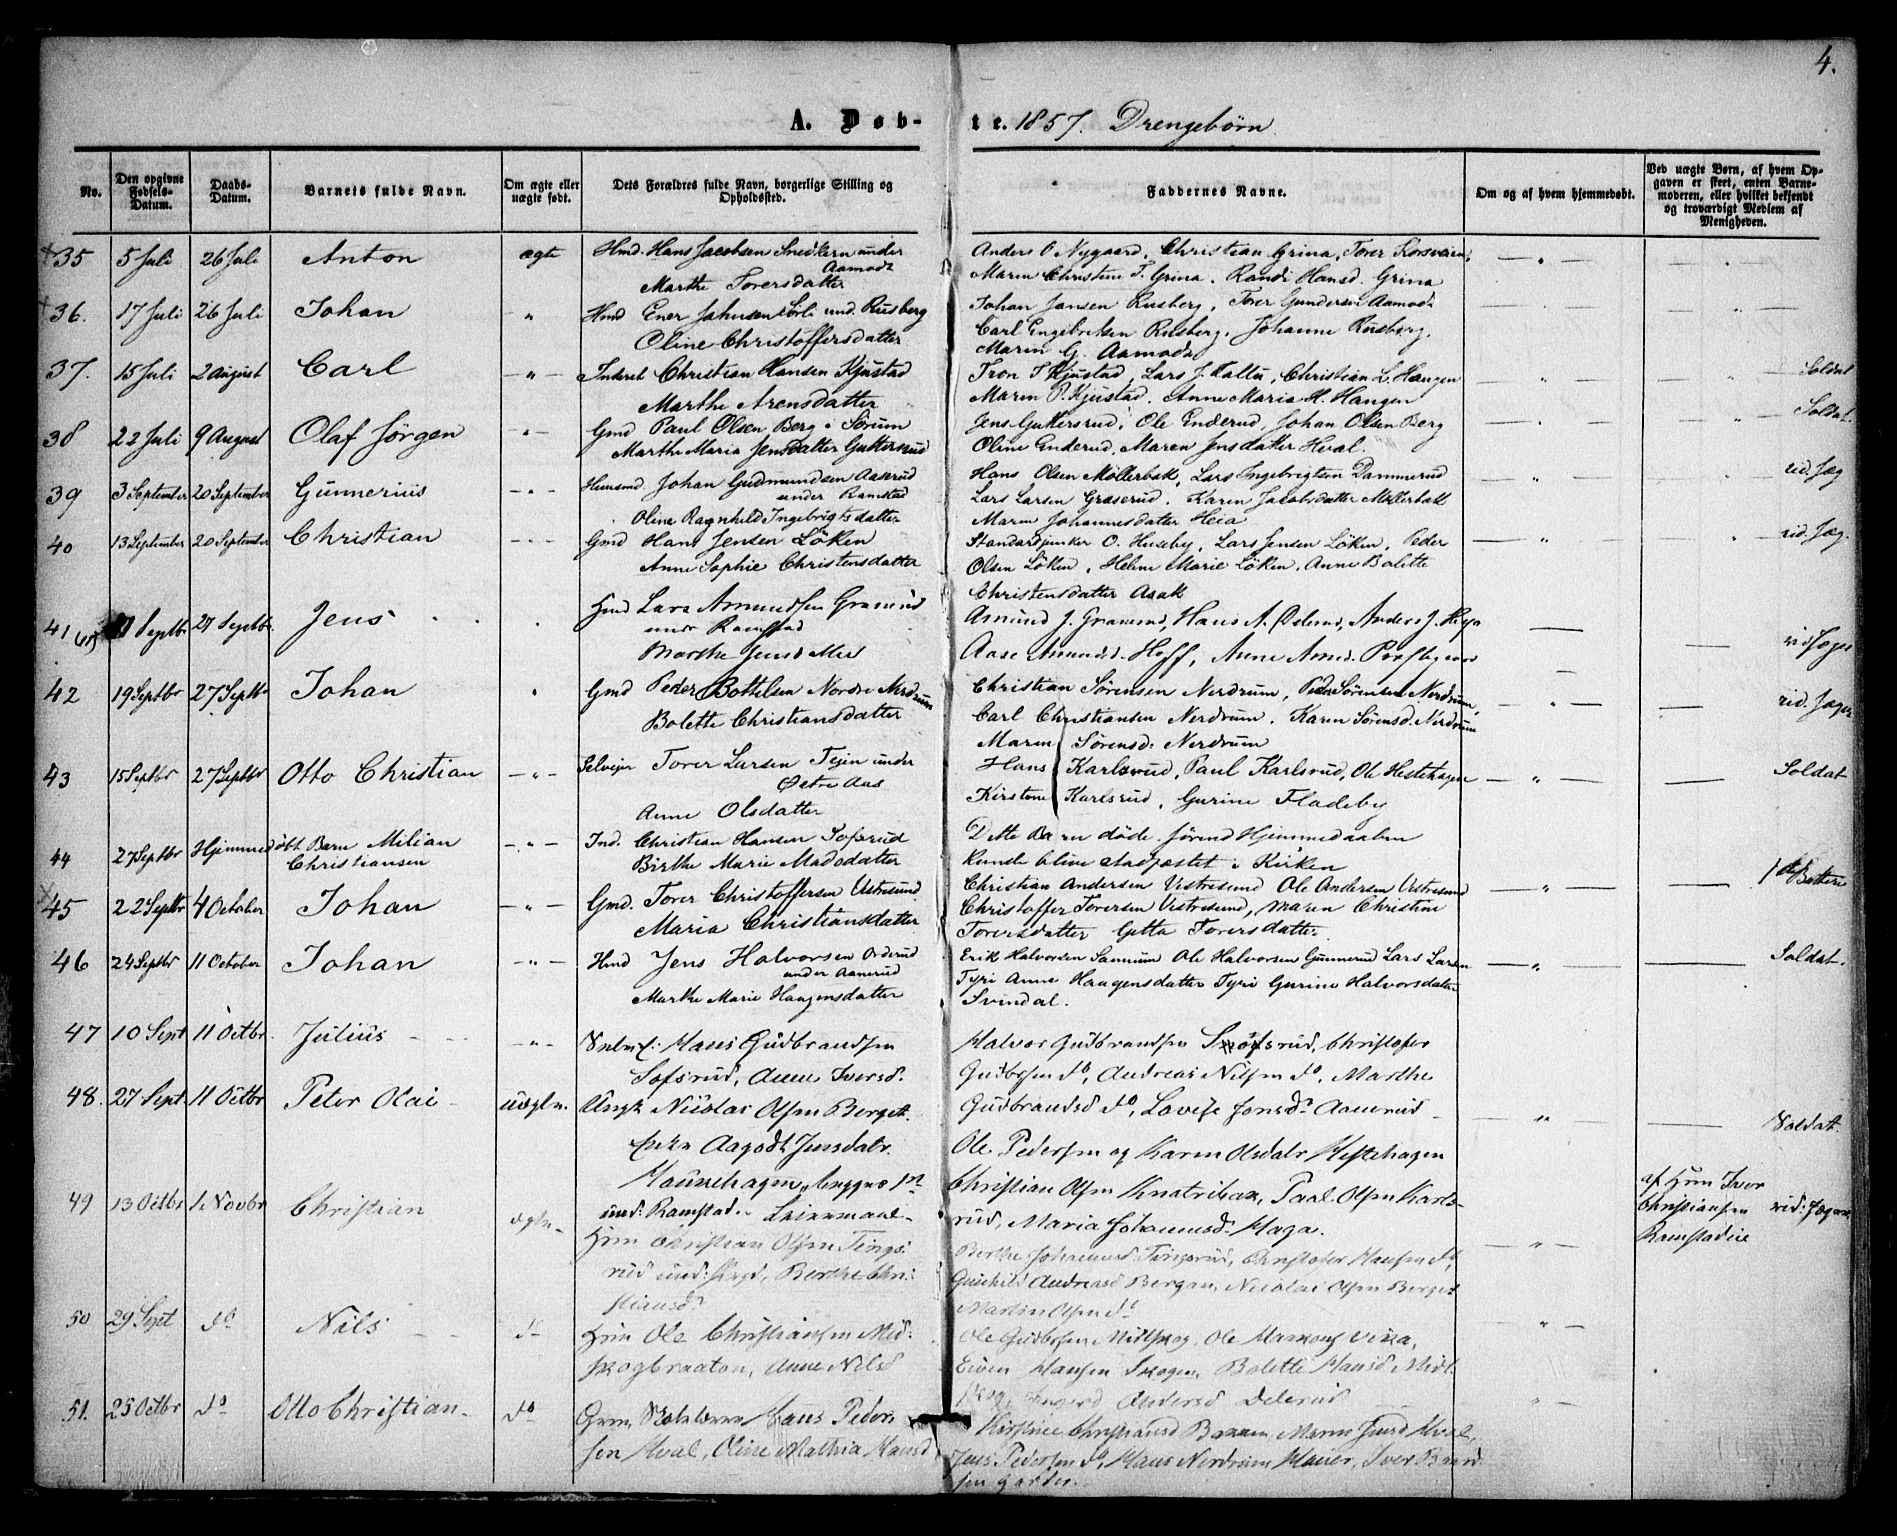 4.
A. Døb-te. 1857. Drengebørn
No.
Den opgivne Fødsels-Datum.
Daabs-Datum.
Barnets fulde Navn.
Om ægte eller uægte født.
Dets Forældres fulde Navn, borgerlige Stilling og Opholdssted.
Faddernes Navne.
Om og af hvem hjemmedøbt.
Ved uægte Børn, af hvem Opgaven er skeet, enten Barnemoderen, eller hvilket bekjendt og troværdigt Medlem af Menigheden.
35 5 Juli 26 Juli Anton ægte Hmd. Hans Jacobsen Snekkern under Aamodt
Marthe Torersdatter
Anders O Nygaard, Christian Grina, Torer Korsveien,
Maren Christine T. Grina. Randi Hansd. Grina
36. 17 Juli 26 Juli Johan " Hmd Ener Johnsen Sörli und. Rusberg
Oline Christoffersdatter
Johan Jansen Rusberg, Torer Gundersen Aamodt
Carl Engebretsen Rusberg, Johanne Rusberg,
Maren G. Aamodt
37. 15 Juli 2 August Carl " Inderst Christian Hansen Kjustad
Marthe Arensdatter
Tron T Kjustad, Lars J. Tallu, Christian L. Haugen
Maren P. Kjustad. Anne Maria H. Haugen
Soldat
38 22 Juli 9 August Olaf Jørgen " Gmd Paul Olsen Berg i Sørum
Marthe Maria Jensdatter Guttersrud
Jens Guttersrud, Ole Enderud, Johan Olsen Berg
Oline Enderud, Maren Jensdatter Hval.
Soldat.
39 3 September 20 September Gunnerius " Huusmd. Johan Gudmundsen Aaserud
under Ramstad
Oline Ragnhild Ingebrigtsdatter
Hans Olsen Møllerbak, Lars Ingebrigtsen Dammerud
Lars Larsen Graserud. Karen Jacobsdatter Møllerbak
Maren Johannesdatter Heia
rid. Jæg
40 13 September 20 September Christian " Gmd Hans Jensen Löken
Anne Sophie Christensdatter
Standartjunker O. Huseby, Lars Jensen Löken, Peder
Olsen Löken, Helene Marie Löken, Anne Bolette
Christensdatter Asak
rid. Jæg.
41 Septbr 27 Septbr. Jens Hmd Lars Amundsen
under Ramstad
Marthe
Amund J. Hans A. Anders J.
Aase Amundsd. Hoff, Anne
rid Jæger
42 19 Septbr 27 Septbr Johan " Gmd Peder Bottelsen Nordre Nerdrum
Bolette Christiansdatter
Christian Sørensen Nerdrum, Peder Sørensen Nerdrum,
Carl Christiansen Nerdrum. Karen Sørensd. Nerdrum
Maren Sørensd: Nerdrum
rid. Jæger
43 15 Septbr 27 Septbr Otto Christian " Selveier Torer Larsen Tejen under
Østre Aas
Anne Olsdatter
Hans Karlsrud, Paul Karlsrud, Ole Hestehagen
Kirstine Karlsrud, Gurine Fladeby
Soldat
44 27 Septbr Hjemmedøbt Barn Milian
Christiansen
" Ind. Christian Hansen Sofsrud
Birthe Marie Madsdatter
Dette Barn døde førend Hjemmedaaben
kunde blive stadfæstet i Kirken
45 22 Septbr 4 October Johan " Gmd. Torer Christoffersen Vestresund
Maria Christiansdatter
Christian Andersen Vestresund Ole Andersen Vestresund
Christoffer Torersen Vestresund, Maren Christine
Torersdatter Getta Torersdatter
46 24 Septbr 11 October Johan " Hmd Jens Halvorsen Orderud
under Aanerud
Marthe Marie Haagensdatter
Erik Halvorsen Samnum Ole Halvorsen Gunnerud Lars Larsen
Tyri Anne Haagensdatter Tyri Gurine Halvorsdatter
Svindal.
Soldat.
47 10 Sept 11 Octbr. Julius " Hans Gudbrandsen
Sofsrud, Anne Iversd.
Halvor Gudbrandsen Christopher
Gudbrsen do, Andreas Nilsen do, Marthe
Gudbrandsd do, Lovise Jonsd. Aanerud
48. 27 Sept 11 Octbr Peter Olai uægte. Nicolai Olsen Berget
Aagodt Jensdatr.
Ole Pedersen og Karen Olsdatr Hestehagen
Christian Olsen Paul Olsen Karls-
rud, Maria Johannesd. Haga.
Soldat.
49 13 Octbr 1 Novbr Christian ægte Hmn Christian Olsen Tings-
rud und: Berthe Chri-
stiansd.
Berthe Johannesd Tingsrud, Christopher Hansen do,
Gunhild Andreasd Bergan, Nicolai Olsen Berget
Martin Olsen do
af Hmn Iver
Christiansen
rid: Jæger
50 29 Sept do Nils do Hmn Ole Christiansen Mid-
skogbraaten, Anne Nilsd
Ole Gudbrsen Midskog, Ole
Even Hansen Skogen, Bolette Hansd Mid-
skog, Andersd
51. 25 Octbr do Otto Christian do Hans Peder-
sen Hval, Oline Mathia Hansd
Kirstine Christiansd Bakken, Maren Jensd Hval,
Jens Pedersen do, Hans Nerdrum Iver